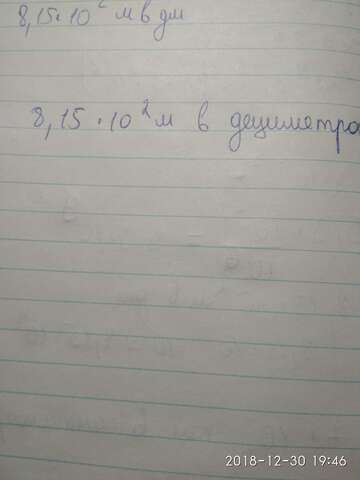 8,15·10² м в дм
8,15·10² м в дециметра
2018-12-30 19:46